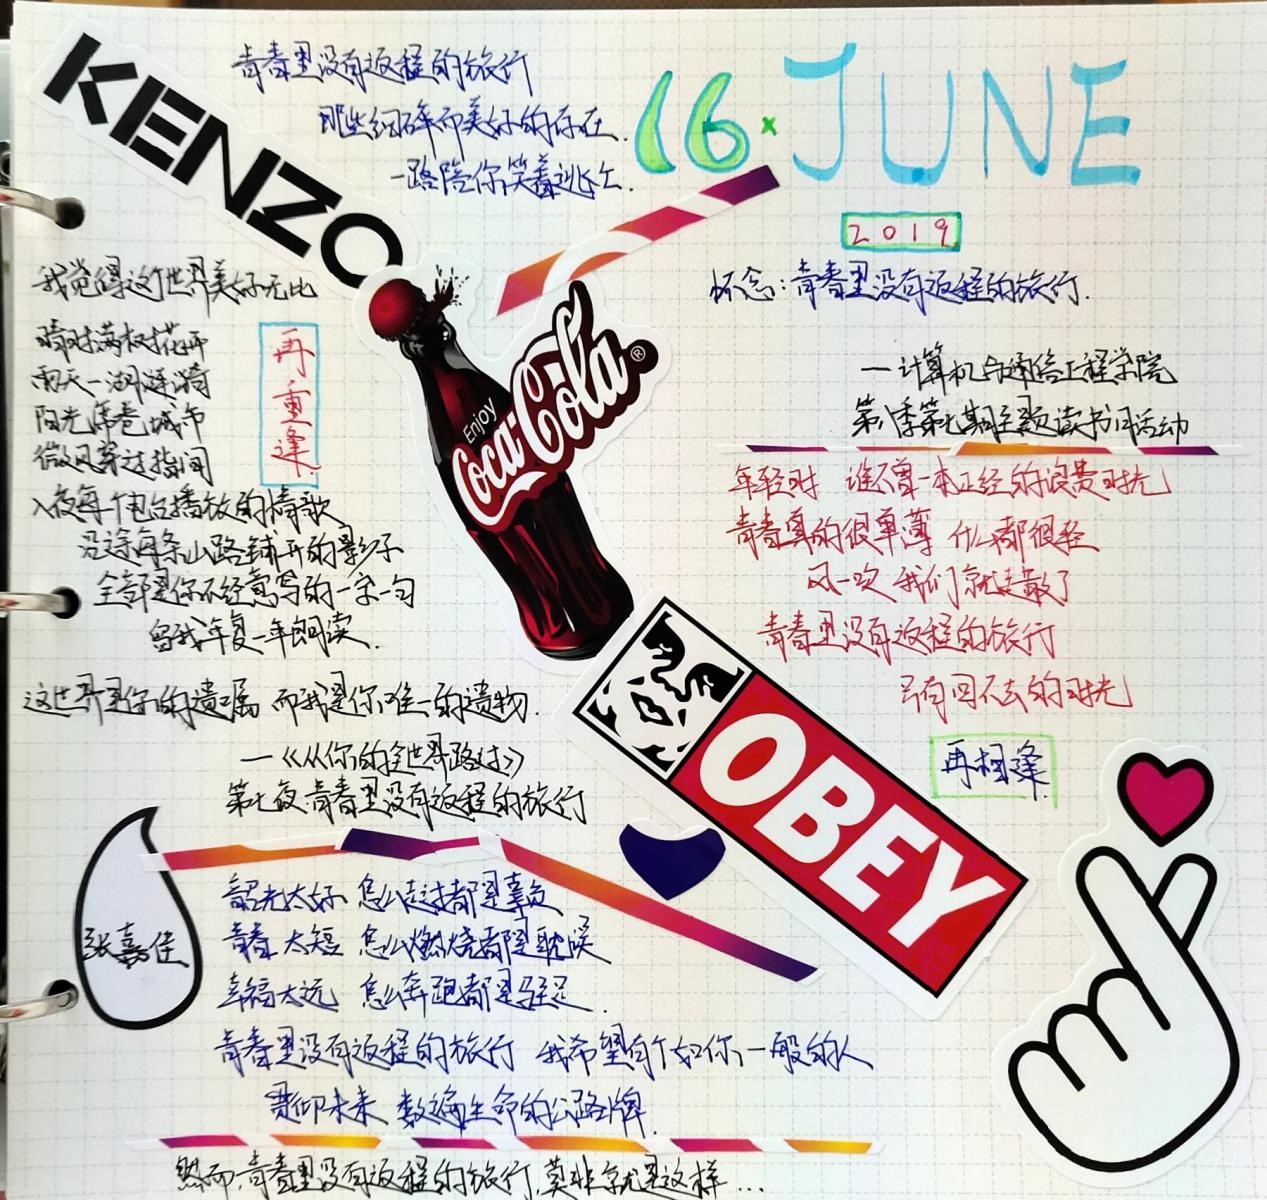 KENZO
青春里没有返程的旅行
那些细碎而美好的存在
一路陪你笑着逃亡.
16.JUNE
2019
怀念:青春里没有返程的旅行.
—计算机与通信工程学院
第八季第七期主题读书日活动
我觉得这个世界美好无比
晴时满树花开
雨天一湖涟漪
阳光席卷城市
微风穿越指间
入夜每个电台播放的情歌
沿途每条山路铺开的影子
全部是你不经意写的一字一句
留我年复一年朗读.
再重逢
Enjoy
Coca-Cola
®
年轻时 谁不曾一本正经的浪费时光
青春真的很单薄 什么都很轻
风一吹 我们就走散了
青春里没有返程的旅行
只有回不去的时光
再相逢
这世界是你的遗嘱 而我是你唯一的遗物.
—《从你的全世界路过》
第七夜.青春里没有返程的旅行
OBEY
张嘉佳
韶光太好 怎么走过都是辜负
青春太短 怎么燃烧都是耽误
幸福太远 怎么奔跑都是驻足.
青春里没有返程的旅行 我希望有个如你一般的人
贯彻未来 数遍生命的公路牌.
然而,青春里没有返程的旅行,莫非就是这样...